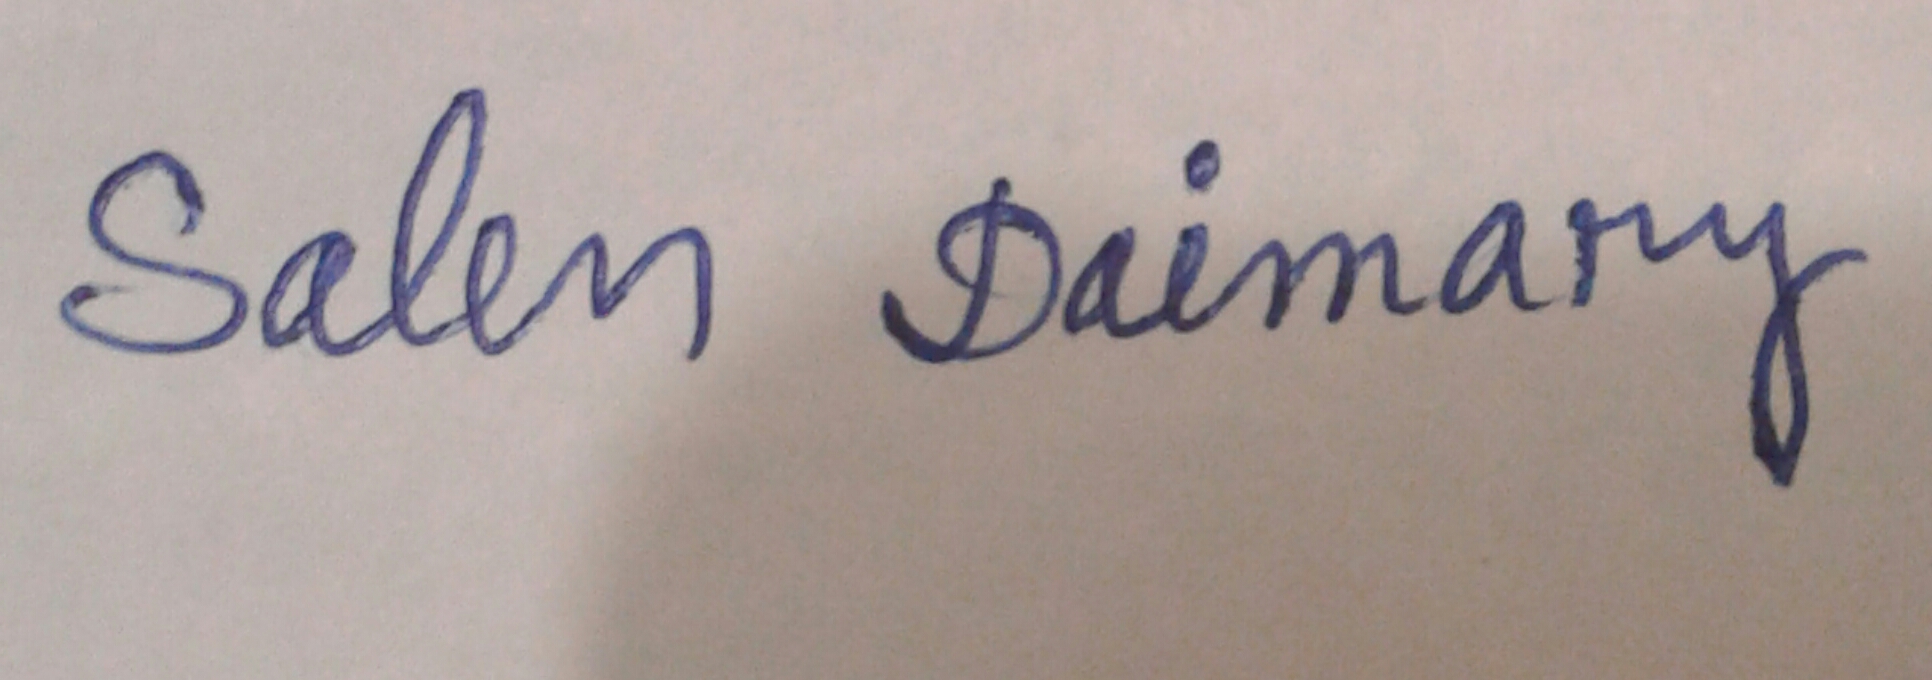 Salen Daimary